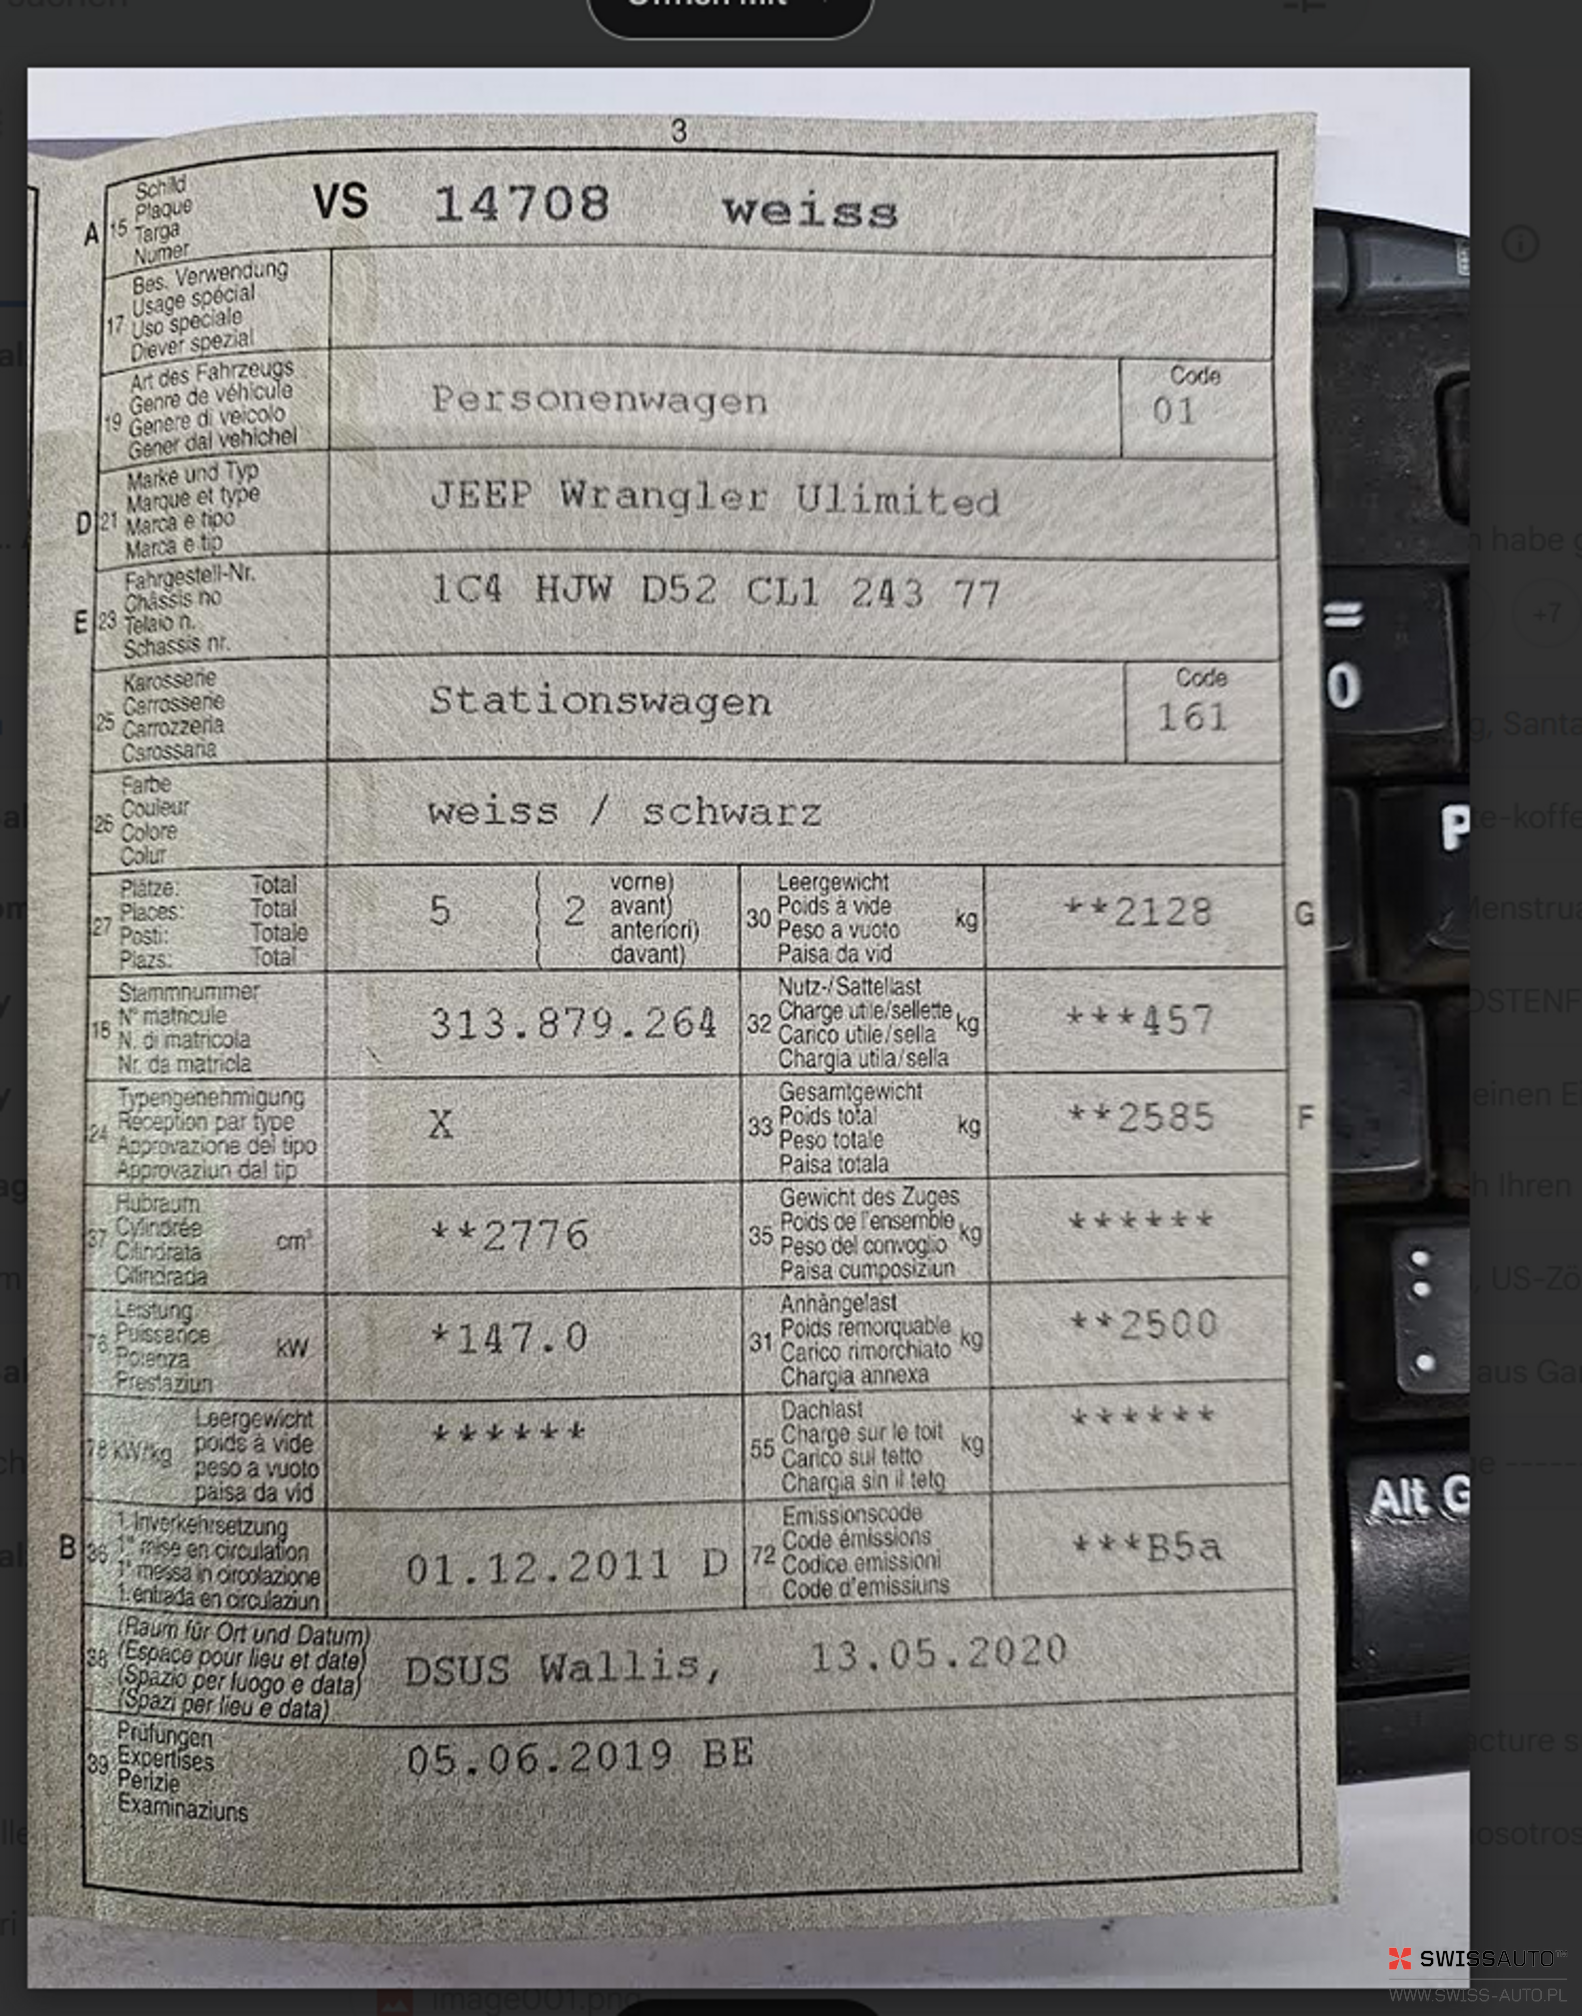 3
A 15 Schild
Plaque
Targa
Numer
VS 14708 weiss
17 Bes. Verwendung
Usage spécial
Uso speciale
Diever spezial
19 Art des Fahrzeugs
Genre de véhicule
Genere di veicolo
Gener dal vehichel
Personenwagen
Code
01
D 21 Marke und Typ
Marque et type
Marca e tipo
Marca e tip
JEEP Wrangler Ulimited
E 23 Fahrgestell-Nr.
Châssis no
Telaio n.
Schassis nr.
1C4 HJW D52 CL1 243 77
25 Karosserie
Carrosserie
Carrozzeria
Carossaria
Stationswagen
Code
161
26 Farbe
Couleur
Colore
Colur
weiss / schwarz
27 Plätze: Total
Places: Total
Posti: Totale
Plazs: Total
5 ( 2 vorne)
avant)
anteriori)
davant)
30 Leergewicht
Poids à vide
Peso a vuoto
Paisa da vid
kg
**2128 G
18 Stammnummer
N° matricule
N. di matricola
Nr. da matricla
313.879.264
32 Nutz-/Sattellast
Charge utile/sellette
Carico utile/sella
Chargia utila/sella
kg
***457
24 Typengenehmigung
Réception par type
Approvazione del tipo
Approvaziun dal tip
X
33 Gesamtgewicht
Poids total
Peso totale
Paisa totala
kg
**2585 F
37 Hubraum
Cylindrée
Cilindrata
Cilindrada
cm³
**2776
35 Gewicht des Zuges
Poids de l'ensemble
Peso del convoglio
Paisa cumposiziun
kg
******
76 Leistung
Puissance
Potenza
Prestaziun
kW
*147.0
31 Anhängelast
Poids remorquable
Carico rimorchiato
Chargia annexa
kg
**2500
78 kW/kg Leergewicht
poids à vide
peso a vuoto
paisa da vid
******
55 Dachlast
Charge sur le toit
Carico sul tetto
Chargia sin il tetg
kg
******
B 36 1. Inverkehrsetzung
1re mise en circulation
1a messa in circolazione
1. entrada en circulaziun
01.12.2011 D
72 Emissionscode
Code émissions
Codice emissioni
Code d'emissiuns
***B5a
38 (Raum für Ort und Datum)
(Espace pour lieu et date)
(Spazio per luogo e data)
(Spazi per lieu e data)
DSUS Wallis, 13.05.2020
39 Prüfungen
Expertises
Perizie
Examinaziuns
05.06.2019 BE
=
0
P
Alt G
habe
+7
g, Santa
te-koffe
einen E
h Ihren
, US-Zö
aus Gar
image001.png
SWISSAUTO™
WWW.SWISS-AUTO.PL